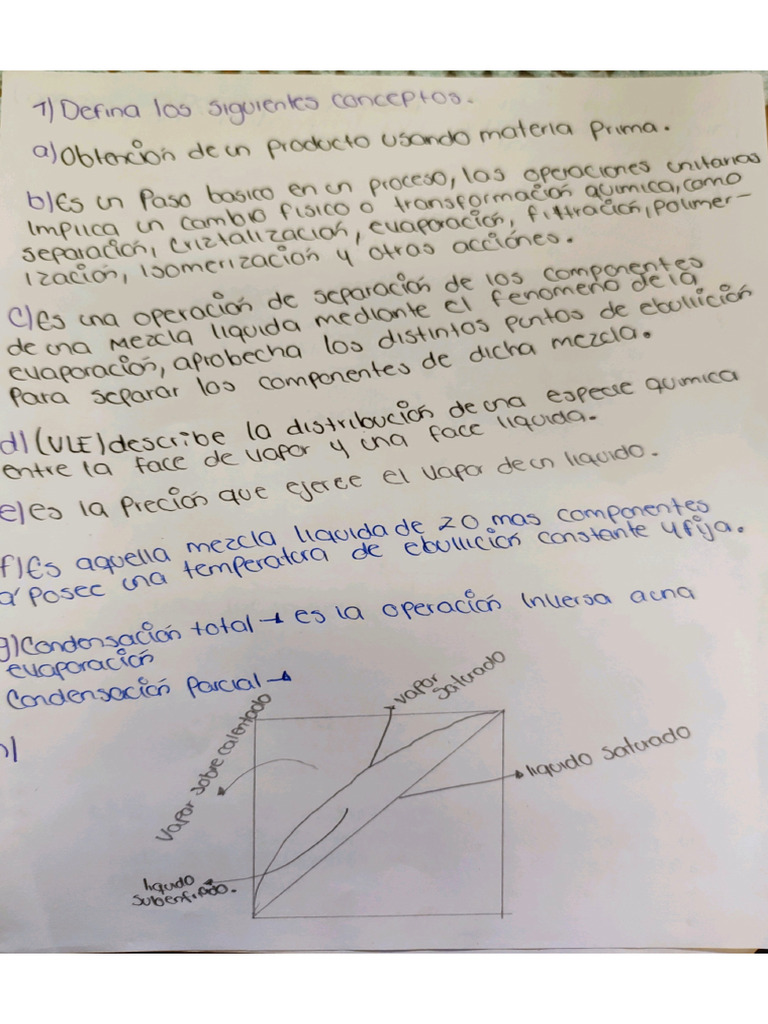 1) Defina los siguientes conceptos.
a) Obtención de un producto usando materia prima.
b) Es un Paso basico en un proceso, las operaciones unitarias
implica un cambio fisico o transformación química, como
separación, criztalización, evaporación, filtración, polimer-
ización, Isomerización y otras acciónes.
c) Es una operación de separación de los componentes
de una mezcla liquida mediante el fenomeno de la
evaporación, aprobecha los distintos puntos de ebullición
para separar los componentes de dicha mezcla.
d) (VLE) describe la distribución de una especie quimica
entre la face de vapor y una face liquida.
e) es la Preción que ejerce el vapor de un liquido.
f) Es aquella mezcla liquida de 2 o mas componentes
q' posee una temperatura de ebullición constante y fija.
g) Condensación total → es la operación inversa a una
evaporación
Condensación Parcial →
vapor
saturado
Vapor sobre calentado
liquido saturado
liquido
subenfriado.